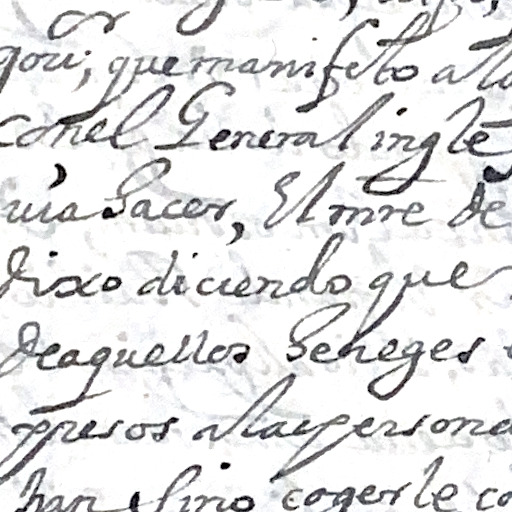 que manifesto a la
con el General ingle
uia haCer, El mre de
dixo diciendo que
de aquellos hereges
presos a la persona
han sino cogerle co